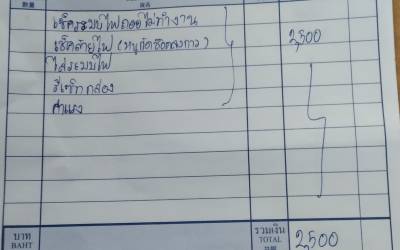 เช็คระบบไฟถอยไม่ทำงาน
เช็คสายไฟ (หนูกัดช็อตลงการ) 2,500
ไล่ระบบไฟ
รีเซ็ทกล่อง
ค่าแรง
บาท BAHT รวมเงิน TOTAL 2,500